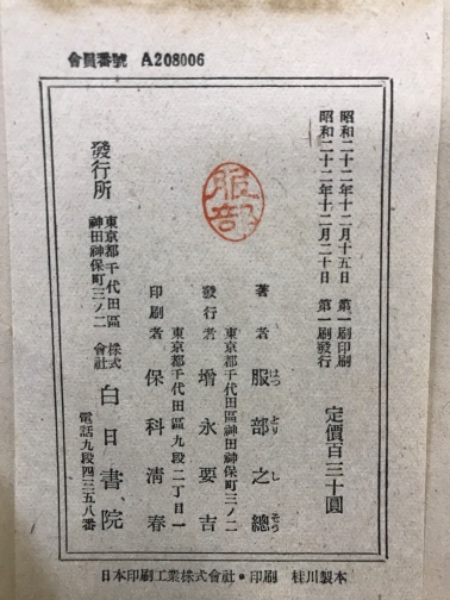 會員番號 A208006
昭和二十二年十二月十五日 第一刷印刷
昭和二十二年十二月二十日 第一刷發行
定價百三十圓
著者 服部之總
はつとりしそう
東京都千代田區神田神保町三ノ二
發行者 増永要吉
東京都千代田區九段二丁目一
印刷者 保科淸春
服部
發行所 東京都千代田區
神田神保町三ノ二
株式
會社 白日書院
電話九段四三五八番
日本印刷工業株式會社・印刷 桂川製本